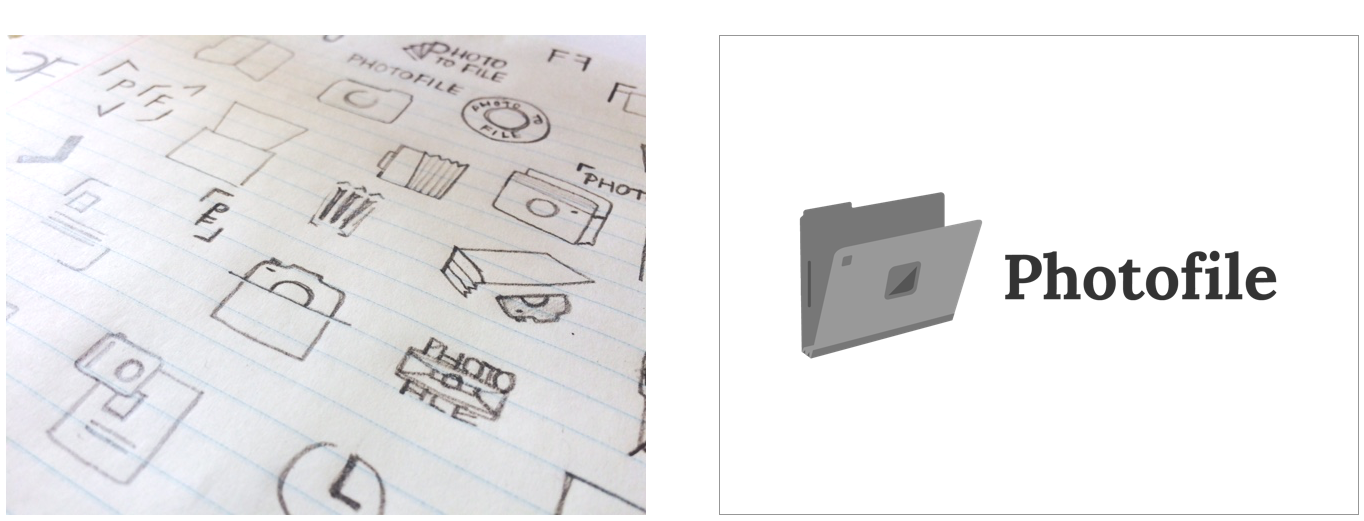 PHOTO
TO FILE
PHOTOFILE
FF
PHOTO TO
FILE
PF
PHOT
PF
PHOTO
FILE
Photofile